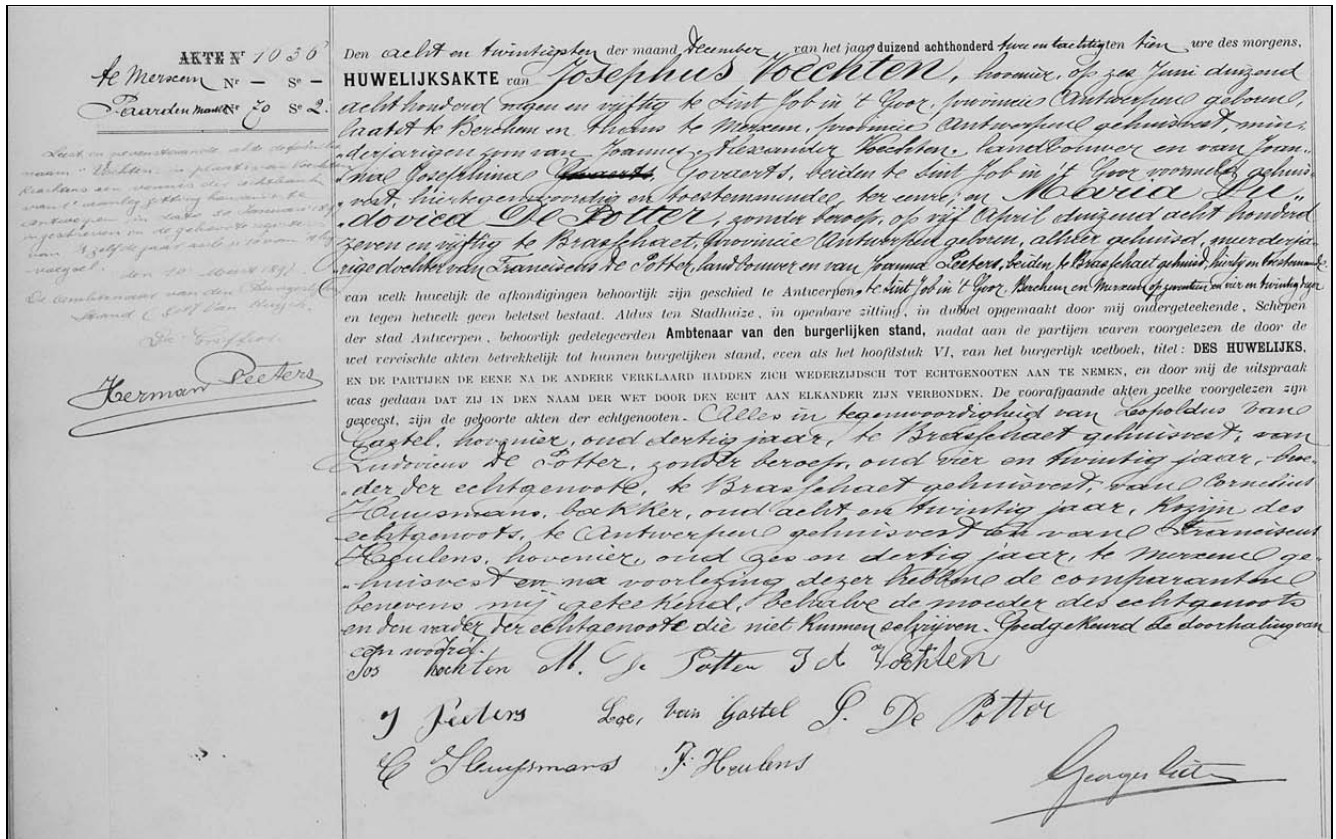 AKTE Nr 1036
te Merxem Nr — Se —
Paardenmarkt Nr 70 Se 2.
naam Vochten in plaats van
Antwerpen in date 20 Januari
ingeschreven in de
van 't zelfde jaar
De Ambtenaar van den Burgerl.
Stand (get) Van
De Griffier
Herman Peeters
Den acht en twintigsten der maand December, van het jaar duizend achthonderd twee en tachtig ten tien ure des morgens,
HUWELIJKSAKTE van Josephus Voechten, hovenier, op zes Juni duizend
achthonderd negen en vijftig te Sint Job in 't Goor, provincie Antwerpen geboren,
laatst te Berchem en thans te Merxem, provincie Antwerpen gehuisvest, min-
derjarigen zoon van Joannes Alexander Voechten, landbouwer en van Joan-
na Josephina Govaerts, beiden te Sint Job in 't Goor voormeld gehuis-
vest, hiertegenwoordig en toestemmende, ter eenre; en Maria Lu-
dovica De Potter, zonder beroep, op vijf April duizend acht honderd
zeven en vijftig te Brasschaet, provincie Antwerpen geboren, alhier gehuisd, meerderja-
rige dochter van Franciscus De Potter, landbouwer en van Joanna Peeters, beiden te Brasschaet gehuisd, hiertg en toestemmende
van welk huwelijk de afkondigingen behoorlijk zijn geschied te Antwerpen, te Sint Job in 't Goor, Berchem en Merxem op zeventien en vier en twintig dezer
en tegen hetwelk geen beletsel bestaat. Aldus ten Stadhuize, in openbare zitting, in dubbel opgemaakt door mij ondergeteekende, Schepen
der stad Antwerpen, behoorlijk gedelegeerden Ambtenaar van den burgerlijken stand, nadat aan de partijen waren voorgelezen de door de
wet vereischte akten betrekkelijk tot hunnen burgelijken stand, even als het hoofdstuk VI, van het burgerlijk wetboek, titel: DES HUWELIJKS,
EN DE PARTIJEN DE EENE NA DE ANDERE VERKLAARD HADDEN ZICH WEDERZIJDSCH TOT ECHTGENOOTEN AAN TE NEMEN, en door mij de uitspraak
was gedaan DAT ZIJ IN DEN NAAM DER WET DOOR DEN ECHT AAN ELKANDER ZIJN VERBONDEN. De voorafgaande akten welke voorgelezen zijn
geweest, zijn de geboorte akten der echtgenooten. Alles in tegenwoordigheid van Leopoldus Van
Gastel, hovenier, oud dertig jaar, te Brasschaet gehuisvest, van
Ludovicus De Potter, zonder beroep, oud vier en twintig jaar, broe-
der der echtgenoote, te Brasschaet gehuisvest, van Cornelius
Huysmans, bakker, oud acht en twintig jaar, kozijn des
echtgenoots, te Antwerpen gehuisvest en van Franciscus
Heulens, hovenier, oud zes en dertig jaar, te Merxem ge-
huisvest en na voorlezing dezer hebben de comparanten
benevens mij geteekend, behalve de moeder des echtgenoots
en den vader der echtgenoote die niet kunnen schrijven. Goedgekeurd de doorhaling van
een woord.
Jos Vochten M. De Potter J A Vochten
J Peeters Leo, Van Gastel L. De Potter
C Huysmans F. Heulens